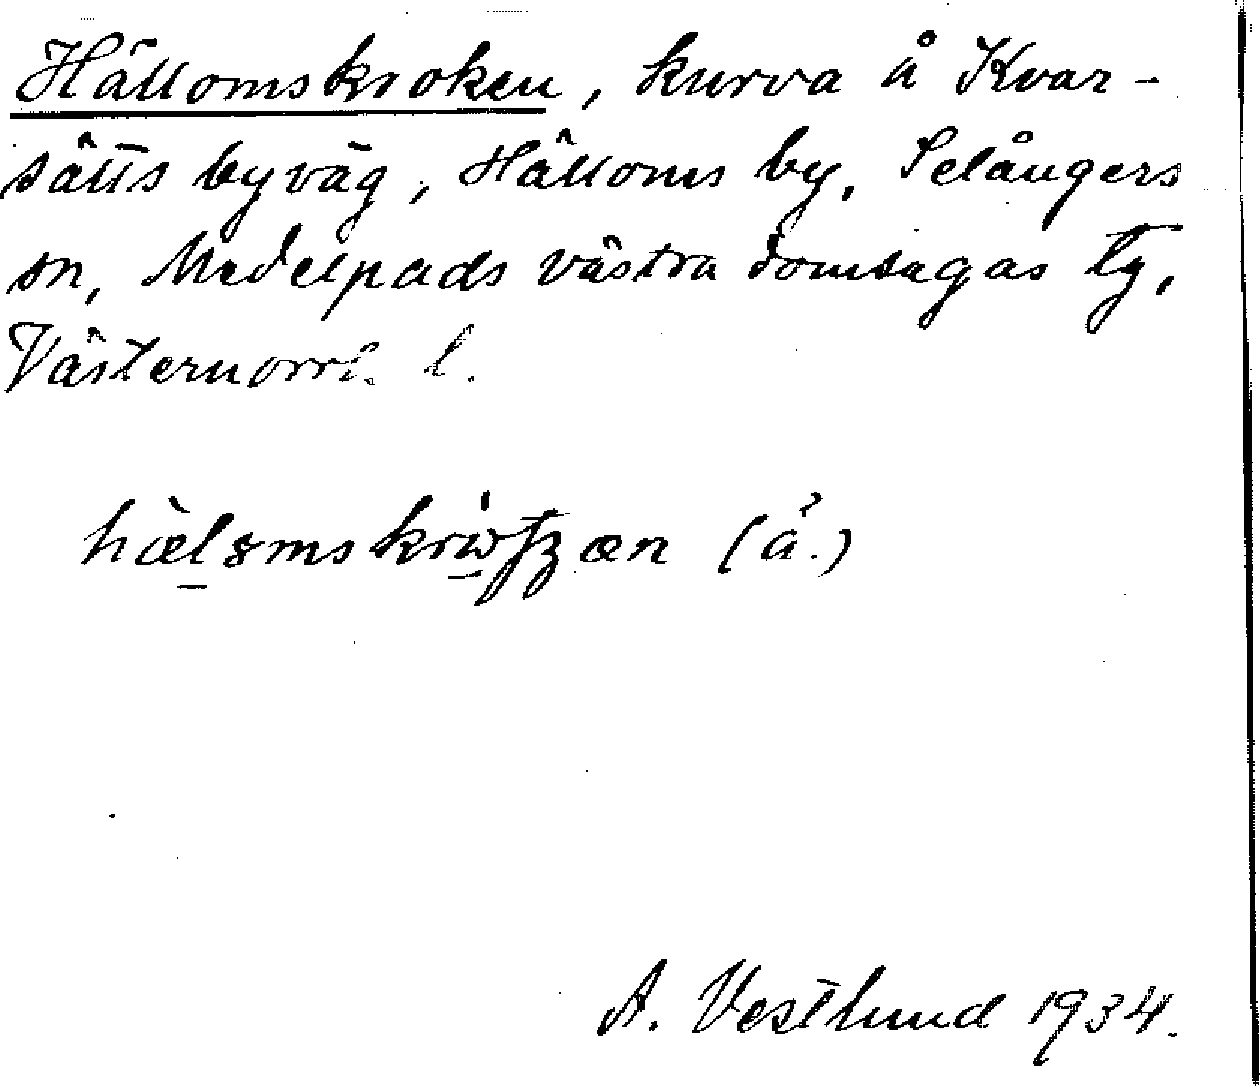 Hällomskroken, kurva å Kvar-
sätts byväg, Hälloms by, Selångers
sn, Medelpads västra domsagas tg,
Västernorrl. l.
(å.)
A. Vestlund 1934.